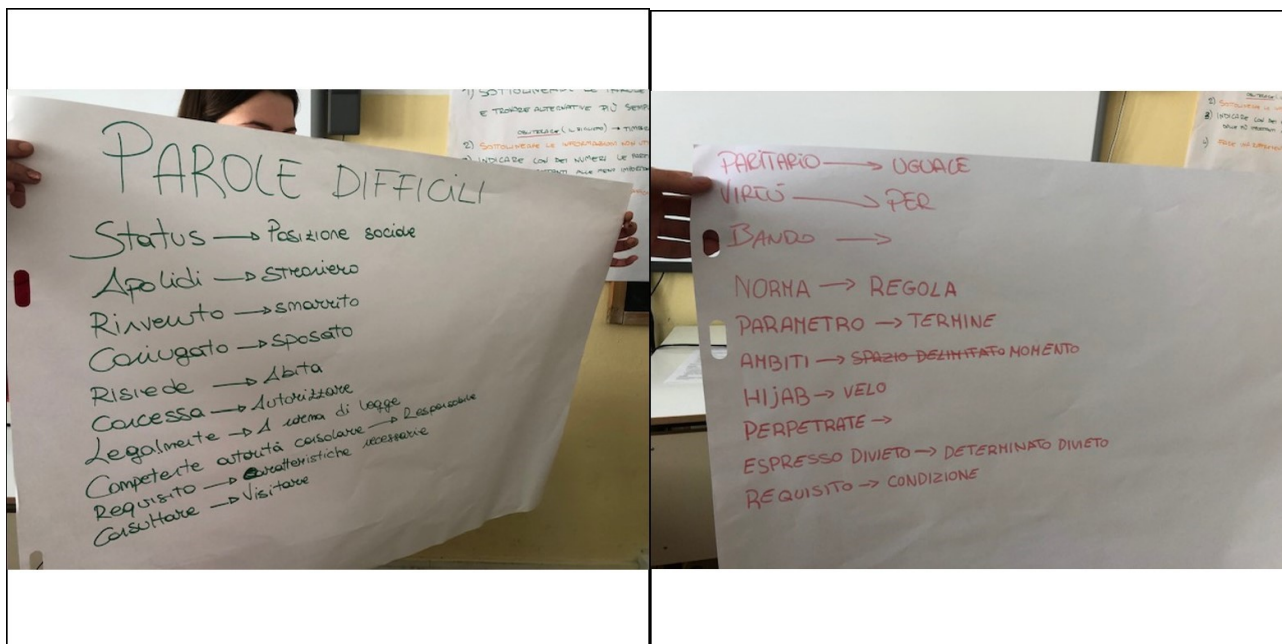 PAROLE DIFFICILI
Status → Posizione sociale
Apolidi → straniero
Rinvenuto → smarrito
Coniugato → sposato
Risiede → Abita
Concessa → Autorizzare
Legalmente → A norma di legge
Competente autorità consolare → Responsabile
Requisito → caratteristiche necessarie
Consultare → Visitare
1) SOTTOLINEARE LE PAROLE
E TROVARE ALTERNATIVE PIÙ SEMPL
OBLITERARE (IL BIGLIETTO) → TIMBRA
2) SOTTOLINEARE LE INFORMAZIONI NON UTI
3) INDICARE CON DEI NUMERI LE PARTI
ALLE MENO IMPORTAN
PARITARIO → UGUALE
VIRTÙ → PER
BANDO →
NORMA → REGOLA
PARAMETRO → TERMINE
AMBITI → SPAZIO DELIMITATO MOMENTO
HIJAB → VELO
PERPETRATE →
ESPRESSO DIVIETO → DETERMINATO DIVIETO
REQUISITO → CONDIZIONE